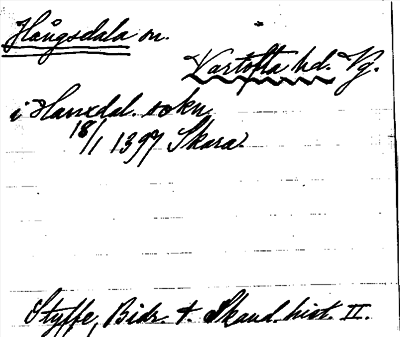 Hångsdala sn.
Vartofta hd. Vg.
i Hanxdal. sokn
18/1 1397 Skara.
Styffe, Bidr. t. Skand. hist. II.